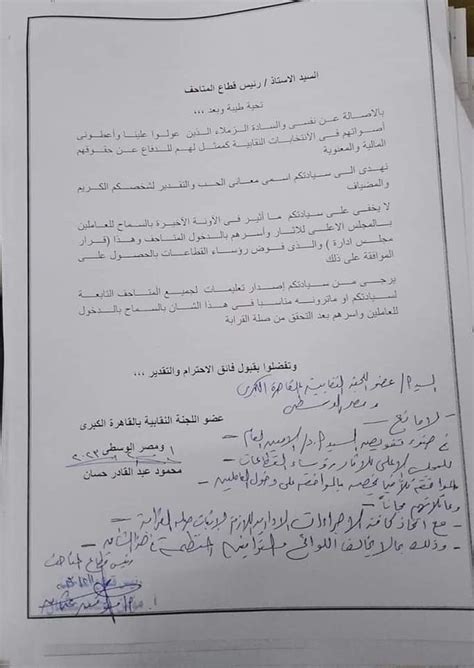 السيد الاستاذ / رئيس قطاع المتاحف
تحية طيبة وبعد ،،،
بالاصالة عن نفسى والسادة الزملاء الذين عولوا علينا وأعطونى
أصواتهم فى الأنتخابات النقابية كممثل لهم للدفاع عن حقوقهم
المالية والمعنوية
نهدى الى سيادتكم اسمى معانى الحب والتقدير لشخصكم الكريم
والمضياف
لا يخفى على سيادتكم ما أثير فى الآونة الأخيرة بالسماح للعاملين
بالمجلس الاعلى للاثار وأسرهم بالدخول المتاحف وهذا (قرار
مجلس ادارة ) والذى فوض رؤساء القطاعات بالحصول على
الموافقة على ذلك
يرجى من سيادتكم إصدار تعليمات لجميع المتاحف التابعة
لسيادتكم او ماترونه مناسبا فى هذا الشان بالسماح بالدخول
للعاملين واسرهم بعد التحقق من صلة القرابة
وتفضلوا بقبول فائق الاحترام والتقدير ،،،
السيد / عضو اللجنة النقابية بالقاهرة الكبرى
و مصر الوسطى
عضو اللجنة النقابية بالقاهرة الكبرى
ومصر الوسطى
محمود عبد القادر حسان
- لا مانع
السيد أ.د/ الامين العام
للمجلس الاعلى للاثار رؤساء القطاعات
بالموافقة على دخول العاملين
وعائلاتهم مجاناً
- مع اتخاذ كافة الاجراءات الادارية اللازمة لاثبات صلة القرابة
- وذلك بما لا يخالف اللوائح والقوانين المنظمة
رئيس قطاع المتاحف